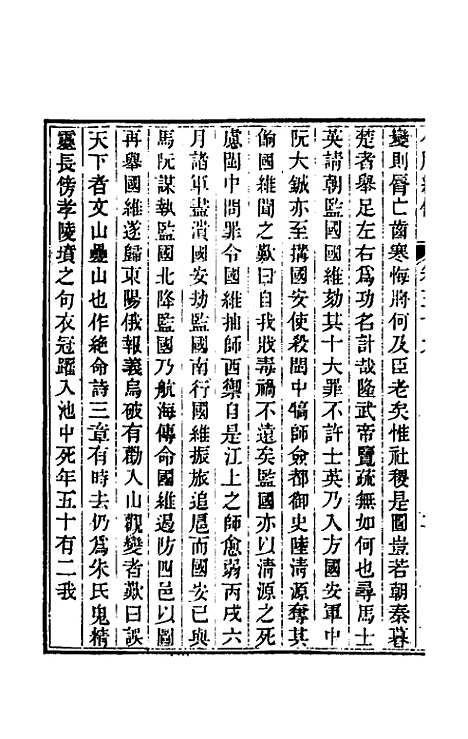 變則脣亡齒寒悔將何及臣老矣惟社稷是圖豈若朝秦暮
楚者舉足左右爲功名計哉隆武帝覽疏無如何也尋馬士
英請朝監國國維劾其十大罪不許士英乃入方國安軍中
阮大鋮亦至搆國安使殺閩中犒師僉都御史陸淸源奪其
餉國維聞之歎曰自我戕毒禍不遠矣監國亦以淸源之死
慮閩中問罪令國維抽師西禦自是江上之師愈弱丙戌六
月諸軍盡潰國安劫監國南行國維振旅追扈而國安已與
馬阮謀執監國北降監國乃航海傳命國維遏防四邑以圖
再舉國維遂歸東陽俄報義烏破有勸入山觀變者歎曰誤
天下者文山疊山也作絶命詩三章有時去仍爲朱氏鬼精
靈長傍孝陵墳之句衣冠躍入池中死年五十有二我